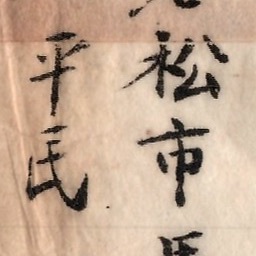 松市
平民